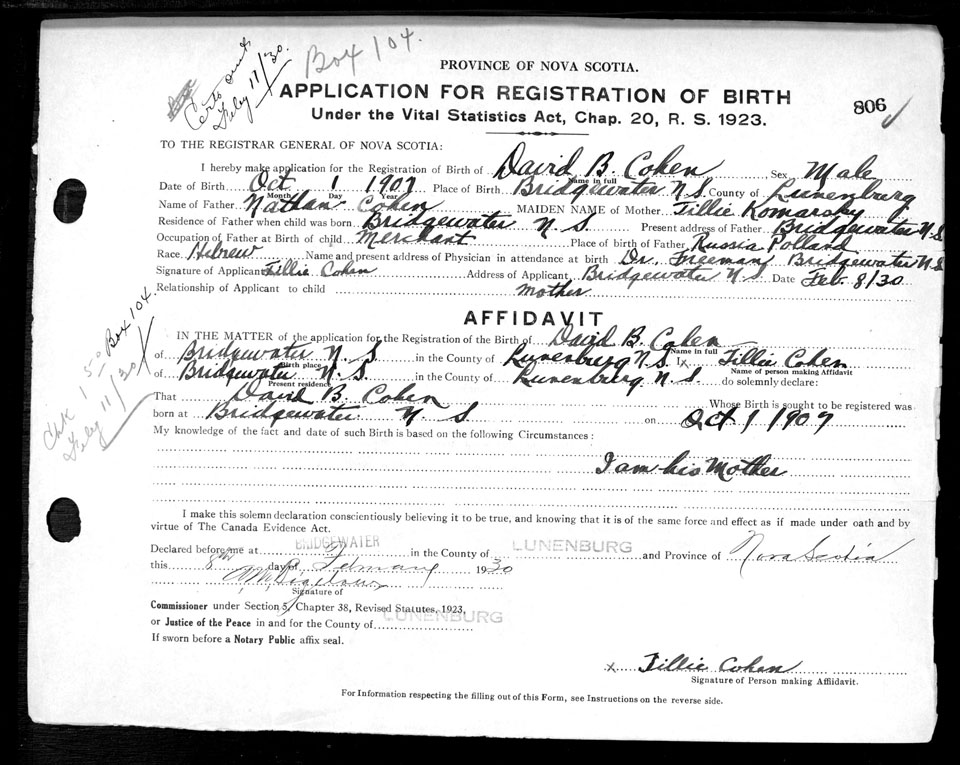 Certs sent
Feby 11/30.
Box 104.
PROVINCE OF NOVA SCOTIA.
APPLICATION FOR REGISTRATION OF BIRTH
806
Under the Vital Statistics Act, Chap. 20, R. S. 1923.
TO THE REGISTRAR GENERAL OF NOVA SCOTIA:
I hereby make application for the Registration of Birth of David B. Cohen Sex Male
Name in full
Date of Birth Oct 1 1909 Place of Birth Bridgewater N.S. County of Lunenburg
Month Day Year
Name of Father Nathan Cohen MAIDEN NAME of Mother Tillie Komarsky
Residence of Father when child was born Bridgewater N S. Present address of Father Bridgewater N.S
Occupation of Father at Birth of child Merchant Place of birth of Father Russia Polland
Race Hebrew Name and present address of Physician in attendance at birth Dr. Freeman, Bridgewater N.S
Signature of Applicant Tillie Cohen Address of Applicant Bridgewater N S Date Feb. 8/30
Relationship of Applicant to child Mother
Chk 1 50 Box 104.
Feby 11/30
AFFIDAVIT
IN THE MATTER of the application for the Registration of the Birth of David B. Cohen
Name in full
of Bridgewater N. S in the County of Lunenburg N.S. I, Tillie Cohen
Birth place Name of person making Affidavit
of Bridgewater N. S. in the County of Lunenburg N. S. do solemnly declare:
Present residence
That David B. Cohen Whose Birth is sought to be registered was
born at Bridgewater N S on Oct 1 1909
My knowledge of the fact and date of such Birth is based on the following Circumstances:
I am his Mother
I make this solemn declaration conscientiously believing it to be true, and knowing that it is of the same force and effect as if made under oath and by
virtue of The Canada Evidence Act.
Declared before me at BRIDGEWATER in the County of LUNENBURG and Province of Nova Scotia
this 8th day of February 1930
Signature of
Commissioner under Section 5, Chapter 38, Revised Statutes, 1923,
or Justice of the Peace in and for the County of LUNENBURG
If sworn before a Notary Public affix seal.
x Tillie Cohen
Signature of Person making Affidavit.
For Information respecting the filling out of this Form, see Instructions on the reverse side.